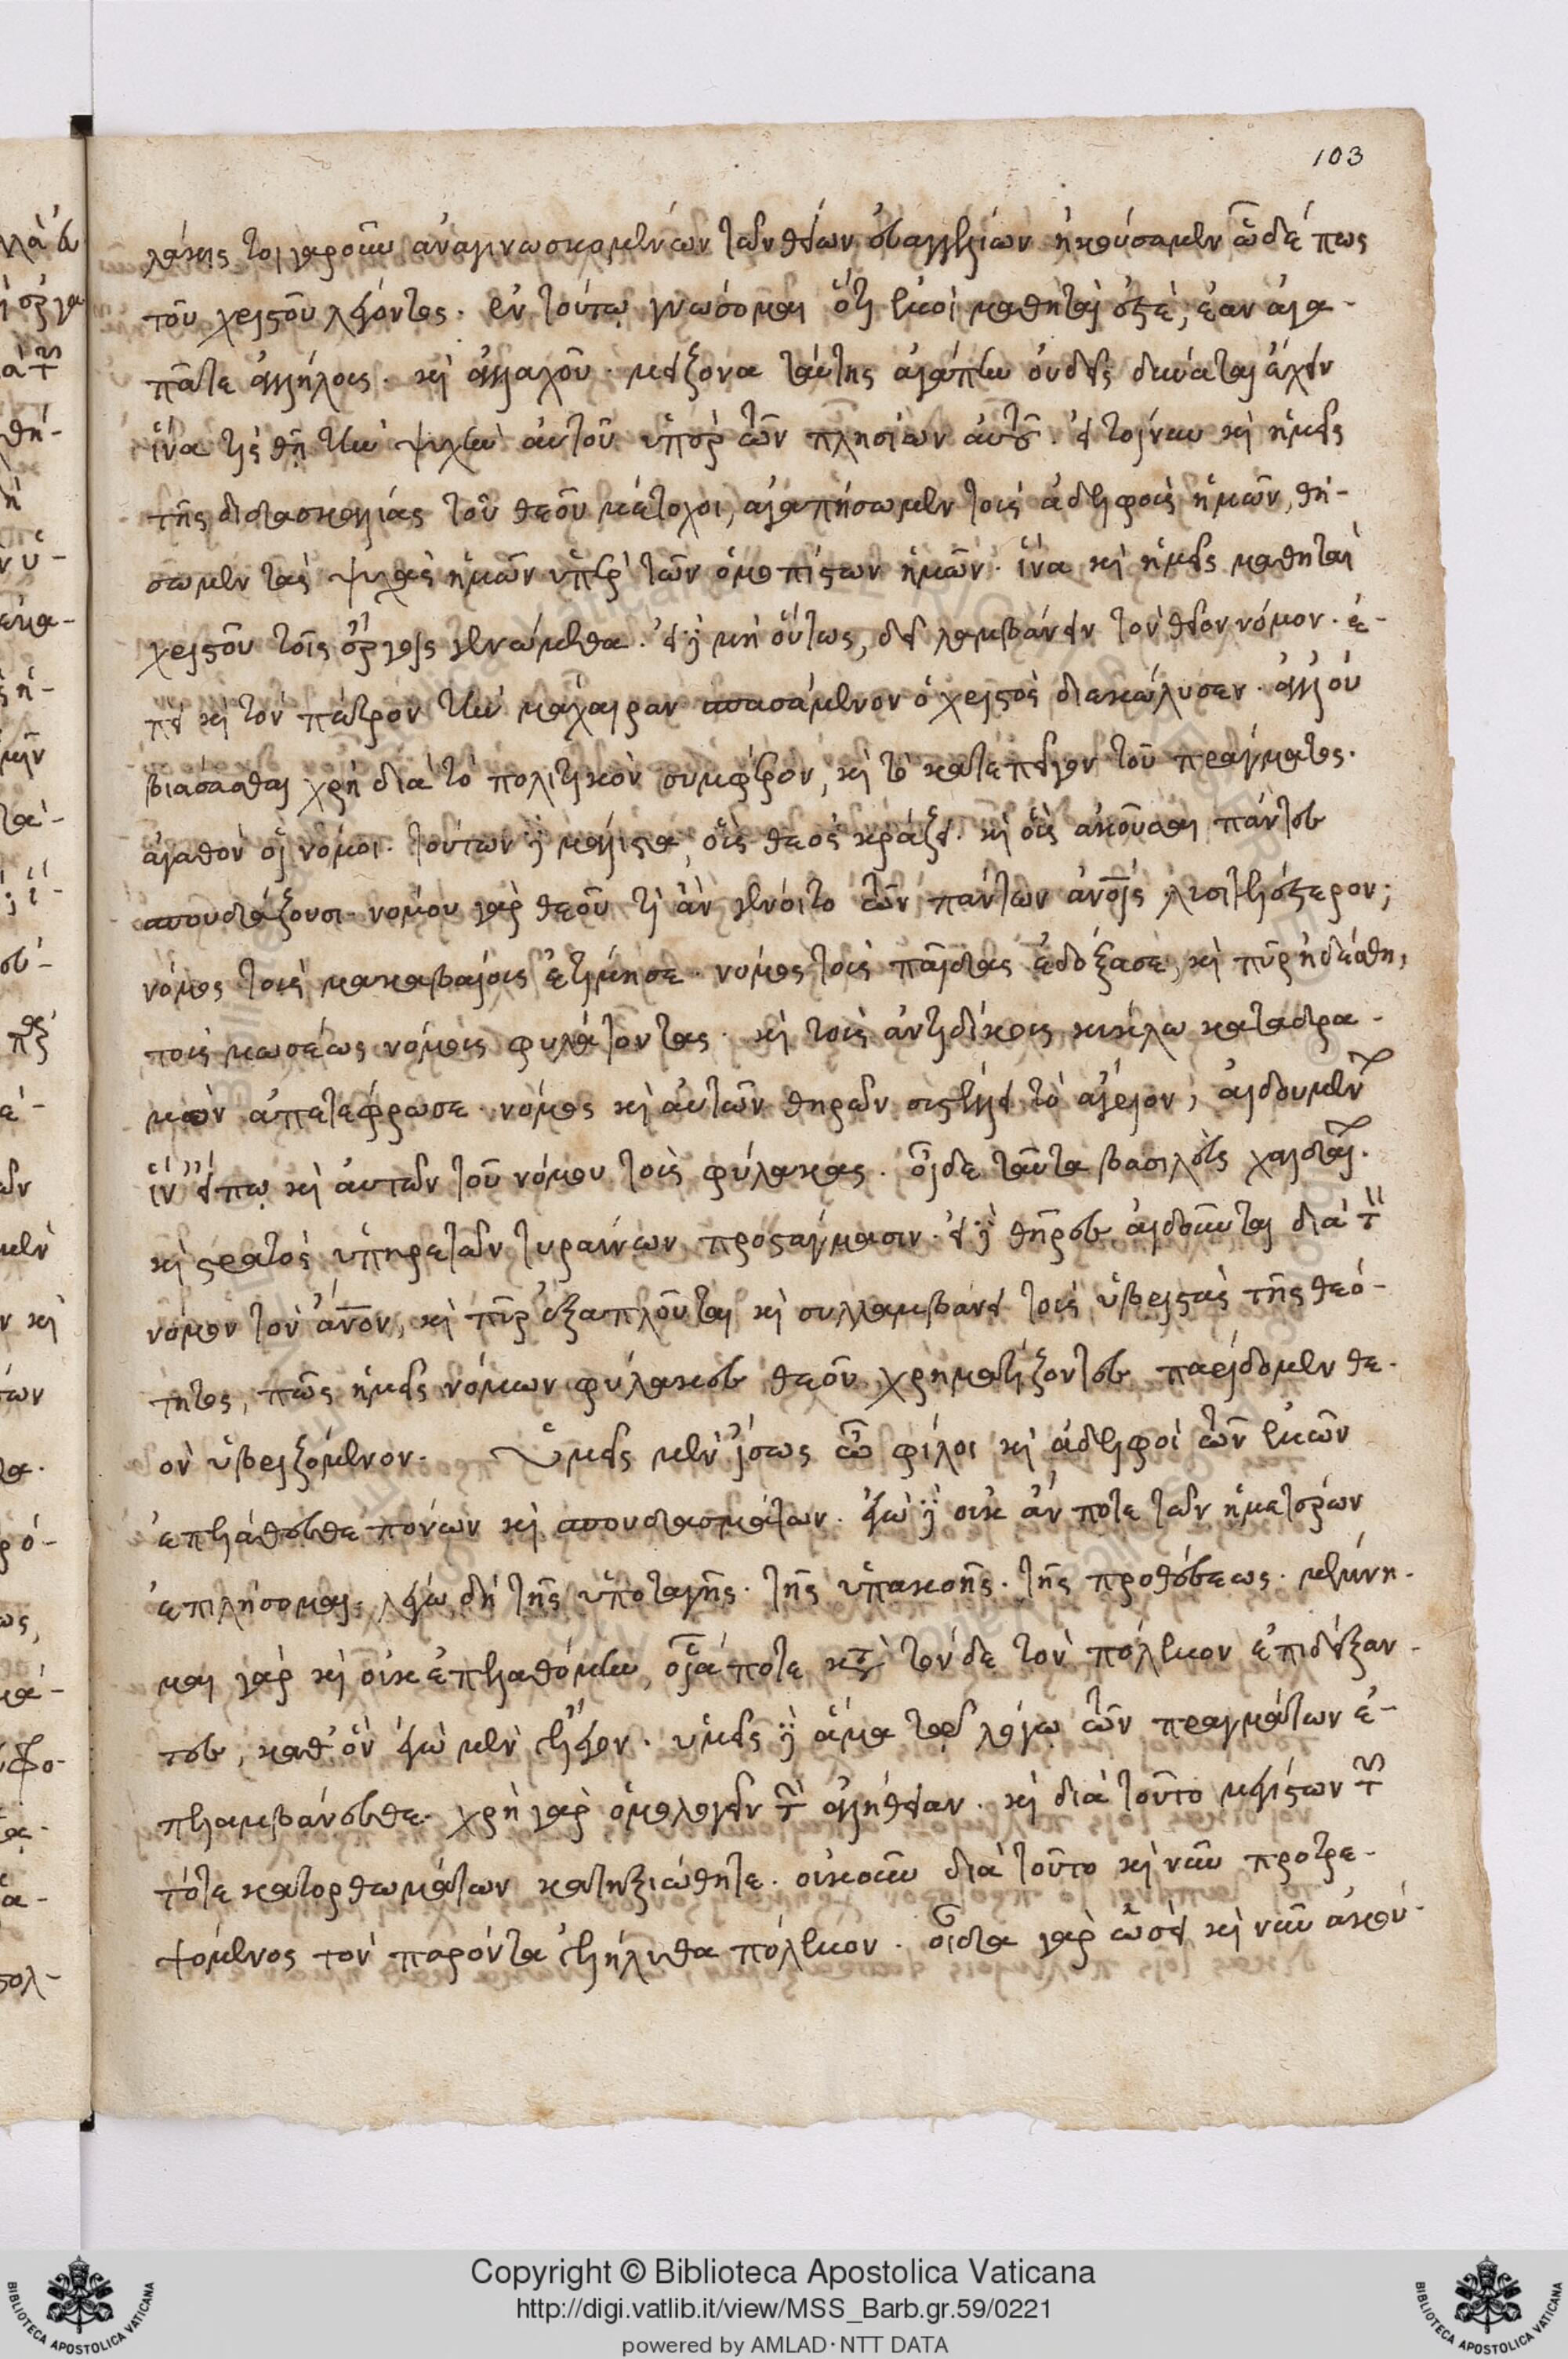 103
λάκις τοιγαροῦν ἀναγινωσκομένων τῶν θείων εὐαγγελίων ἠκούσαμεν ὧδέ πως
τοῦ χριστοῦ λέγοντος. ἐν τούτῳ γνώσομαι ὅτι ἐμοὶ μαθηταί ἐστέ, ἐὰν ἀγα-
πᾶτε ἀλλήλους. καὶ ἀλλαχοῦ. μείζονα ταύτης ἀγάπην οὐδεὶς δύναται ἔχειν
ἵνα τὶς θῇ τὴν ψυχὴν αὐτοῦ ὑπὲρ τῶν πλησίων αὐτοῦ. εἰ τοίνυν καὶ ἡμεῖς
τῆς διδασκαλίας τοῦ θεοῦ μέτοχοι, ἀγαπήσωμεν τοὺς ἀδελφοὺς ἡμῶν, θή-
σωμεν τὰς ψυχὰς ἡμῶν ὑπὲρ τῶν ὁμοπίστων ἡμῶν. ἵνα καὶ ἡμεῖς μαθηταὶ
χριστοῦ τοῖς ἔργοις γενώμεθα. εἰ δὲ μὴ οὕτως, δεῖ λαμβάνειν τὸν θεῖον νόμον. ἐ-
πεὶ καὶ τὸν πέτρον τὴν μάχαιραν σπασάμενον ὁ χριστὸς διεκώλυσεν. ἀλλ' οὐ
βιάσασθαι χρὴ διὰ τὸ πολιτικὸν συμφέρον, καὶ τὸ κατεπεῖγον τοῦ πράγματος.
ἀγαθὸν οἱ νόμοι. τούτων δὲ μάλιστα, οἷς θεὸς κράζει. καὶ οἷς ἀκοῦσαι πάντες
σπουδάζουσι. νόμου γὰρ θεοῦ τί ἂν γένοιτο τῶν πάντων ἀνοις λυσιτελέστερον;
νόμος τοὺς μακαβαίους ἐτίμησε. νόμος τοὺς παῖδας ἐδόξασε, καὶ πῦρ ἠδέσθη,
τοὺς μωσέως νόμους φυλάττοντας. καὶ τοὺς ἀντιδίκους κύκλω καταδρα-
μὸν ἀπετέφρωσε. νόμος καὶ αὐτῶν θηρῶν συστέλλει τὸ ἄγριον, αἰδουμένων
ἵν' εἴπω καὶ αὐτῶν τοῦ νόμου τοὺς φύλακας. οἶδε ταῦτα βασιλεὺς χαλδαῖος.
καὶ στρατὸς ὑπηρετῶν τυράννων προστάγμασιν. εἰ δὲ θῆρες αἰδοῦνται διὰ τὸν
νόμον τὸν ἀνον, καὶ πῦρ ἐξαπλοῦται καὶ συλλαμβάνει τοὺς ὑβριστὰς τῆς θεό-
τητος, πῶς ἡμεῖς νόμων φύλακες θεοῦ χρηματίζοντες παρίδομεν θε-
ὸν ὑβριζόμενον. Ὑμεῖς μὲν ἴσως ὦ φίλοι καὶ ἀδελφοὶ τῶν ἐμῶν
ἐπελάθεσθε πόνων καὶ σπουδασμάτων. ἐγὼ δὲ οὐκ ἄν ποτε τῶν ἡμετέρων
ἐπιλήσομαι. λέγω δὴ τῆς ὑποταγῆς. τῆς ὑπακοῆς. τῆς προθέσεως. μέμνη-
μαι γὰρ καὶ οὐκ ἐπελαθόμην, οἷά ποτε κατὰ τόνδε τὸν πόλεμον ἐπιδείξαν-
τες, καθ' ὃν ἐγὼ μὲν ἔλεγον. ὑμεῖς δὲ ἅμα τῷ λόγω τῶν πραγμάτων ἐ-
πελαμβάνεσθε. χρὴ γὰρ ὁμολογεῖν τὴν ἀλήθειαν. καὶ διὰ τοῦτο μεγίστων τῶν
τότε κατορθωμάτων κατηξιώθητε. οὐκοῦν διὰ τοῦτο καὶ νῦν προτρε-
ψόμενος τὸν παρόντα ἐλήλυθα πόλεμον. οἶδα γὰρ ὡσεὶ καὶ νῦν ἀκού-
Copyright © Biblioteca Apostolica Vaticana
http://digi.vatlib.it/view/MSS_Barb.gr.59/0221
powered by AMLAD·NTT DATA